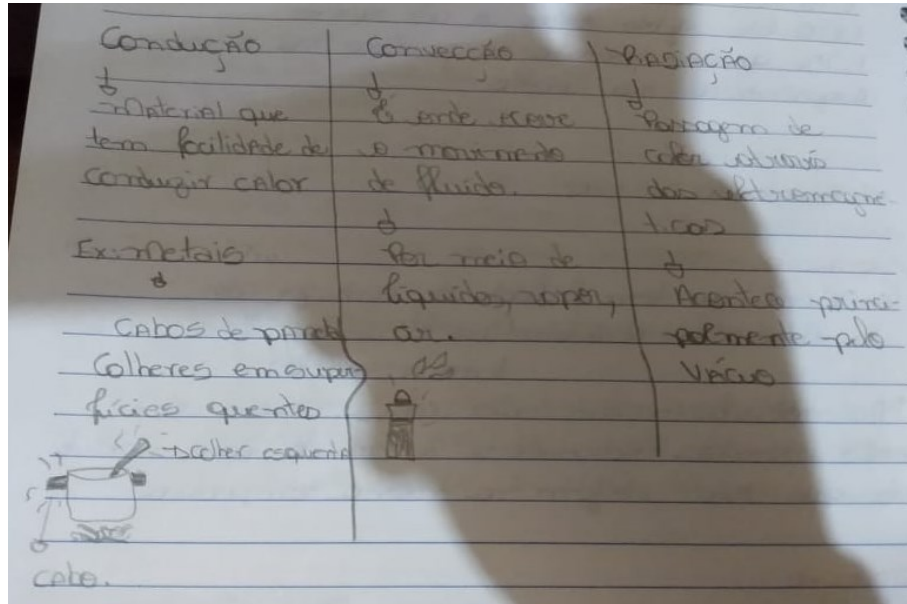 Condução
↓
Material que
tem facilidade de
conduzir calor
Ex: Metais
↓
Cabos de panela
Colheres em super
fícies quentes
→ colher esquenta
cabo.
Convecção
↓
É onde ocorre
o movimento
de fluido.
↓
Por meio de
líquidos, vapor,
ar.
Radiação
↓
Passagem de
calor através
das eletromagné-
ticas
↓
Acontece princi-
palmente pelo
Vácuo